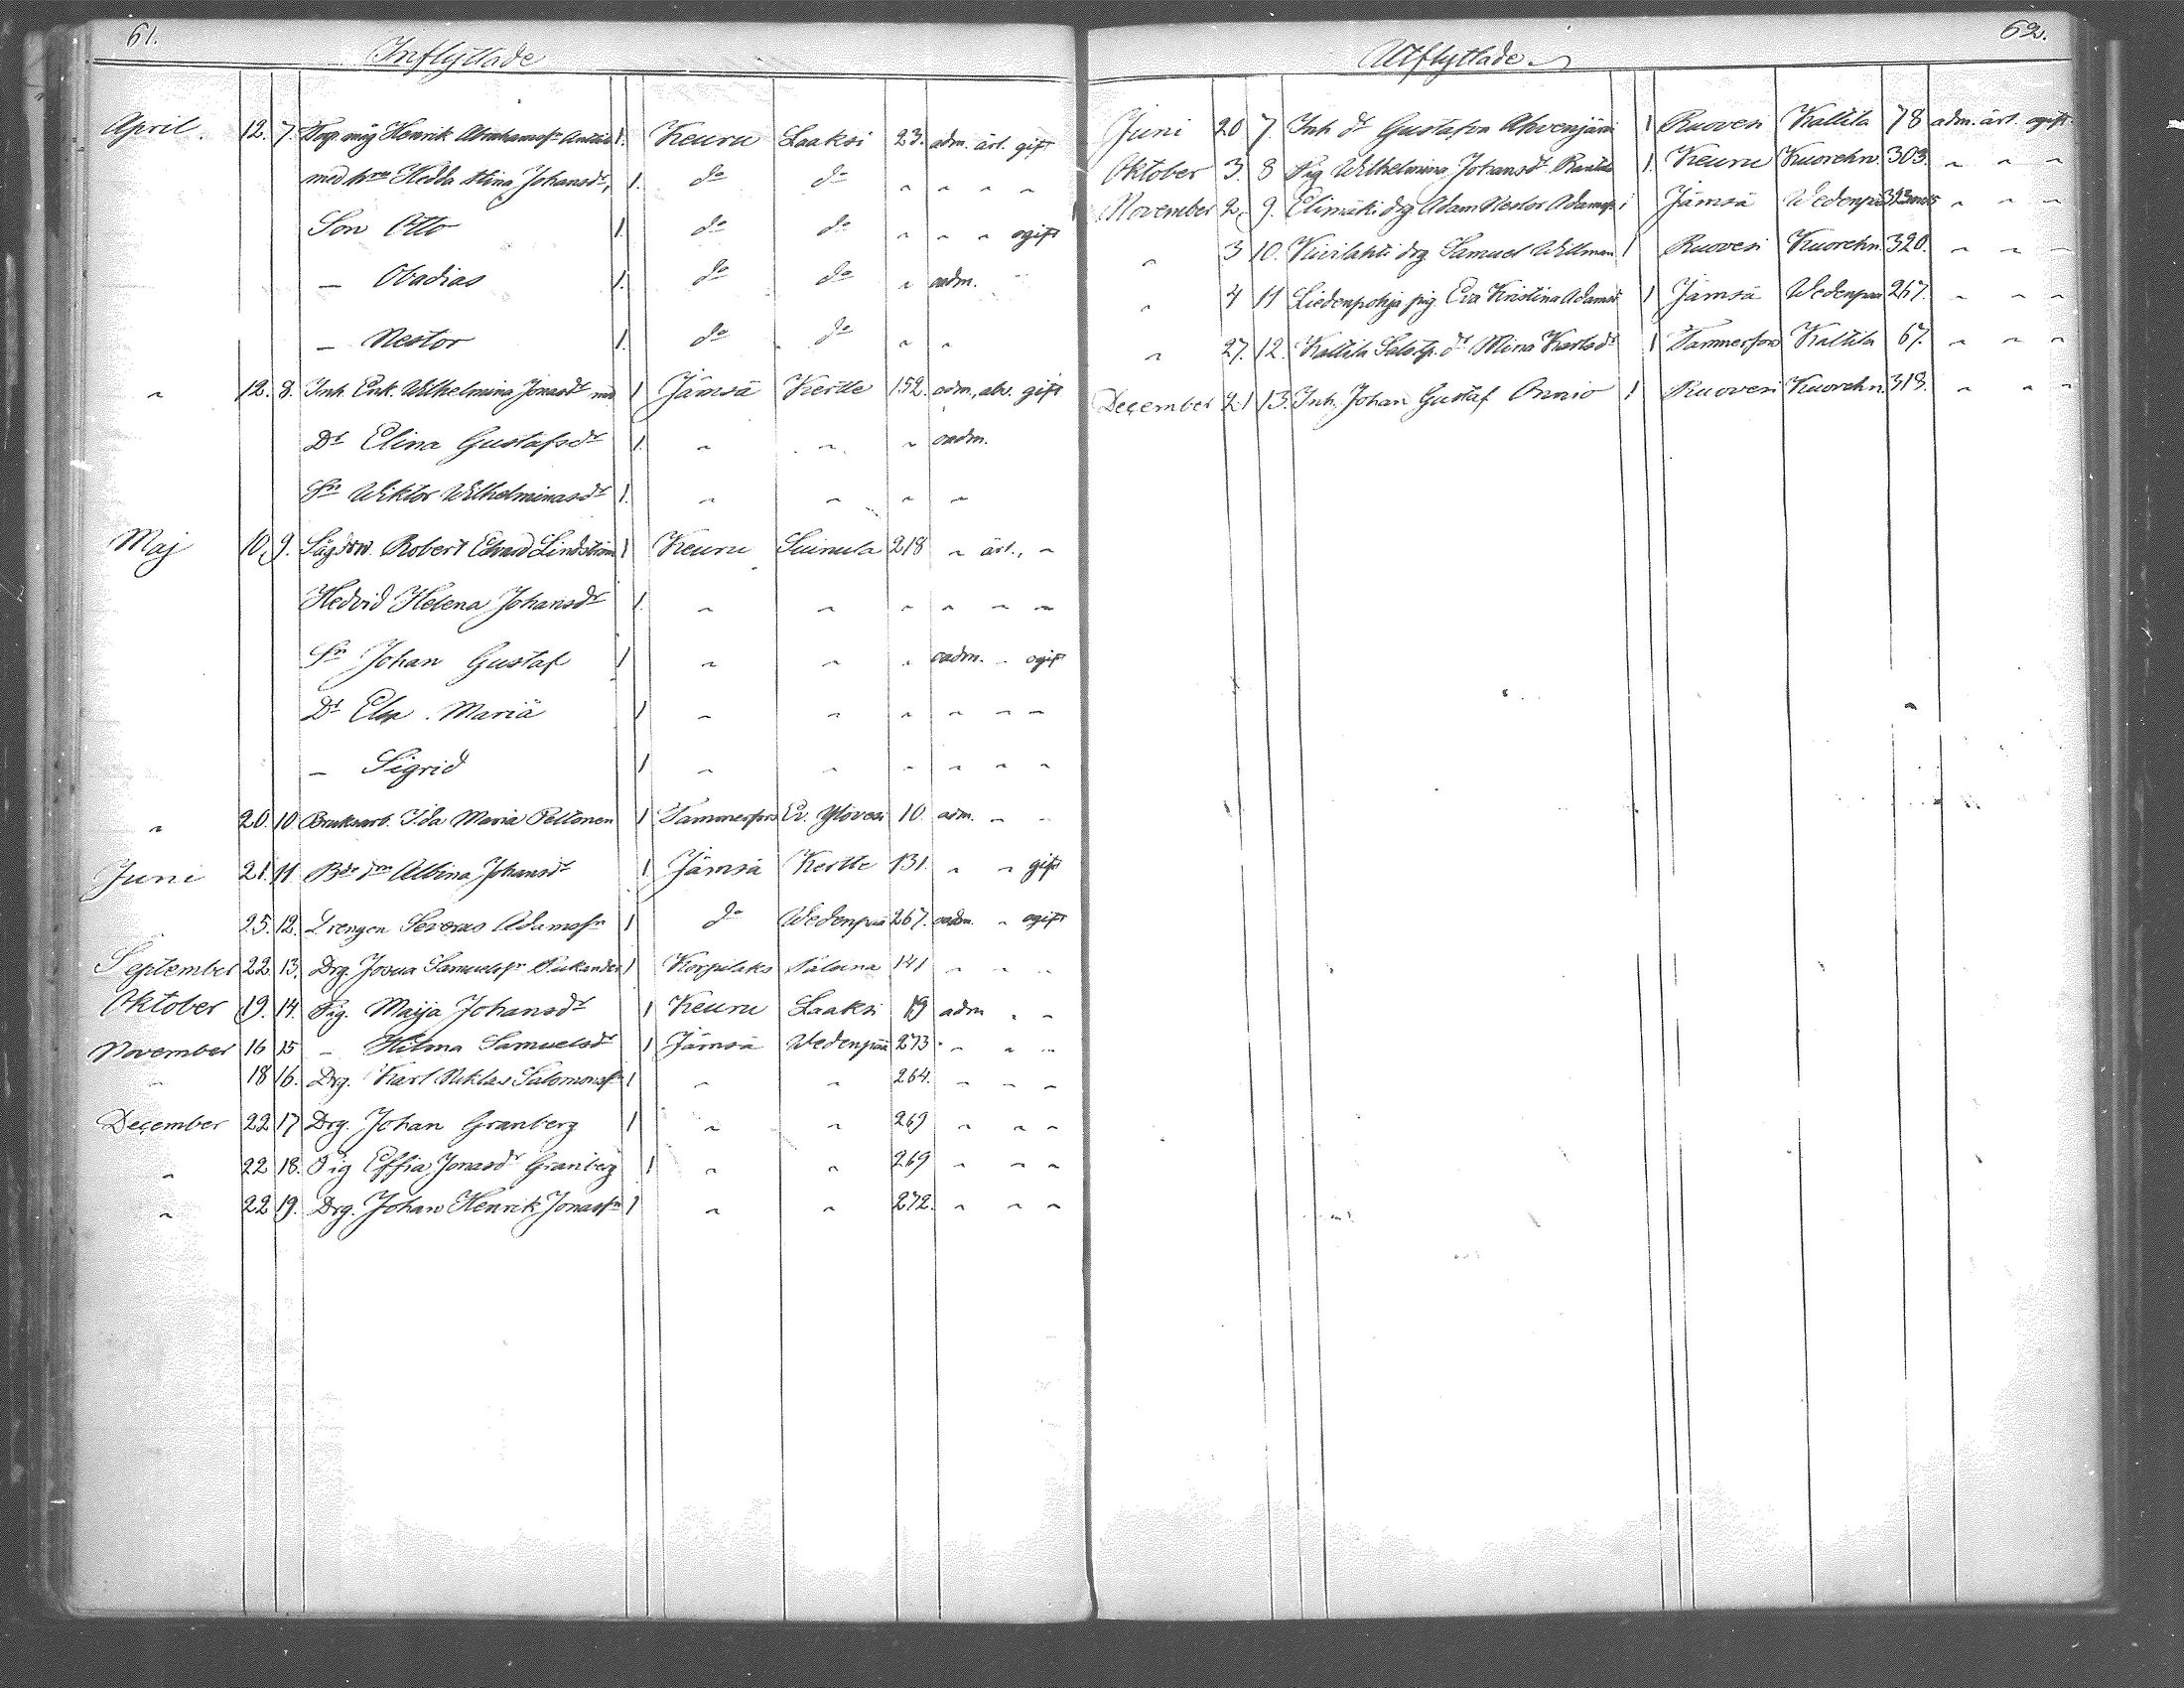 61.
Inflyttade
April. 12. 7. Torp. måg Henrik Abrahamsn 1. Keuru Laaksi 23. adm. ärl. gift
med hru Hedda Stina Johansdr, 1. do do " " " "
Son Otto 1. do do " " " ogift
— Obadias 1. do do " oadm.
— Nestor 1. do do " "
" 12. 8. Inh. Enk. Wilhelmina Jonasdr med 1 Jämsä Kertte 152. adm., abs. gift
Dr Elina Gustafsdr 1. " " " oadm.
Sn Wiktor Wilhelminasdr 1. " " " "
Maj 10. 9. Robert Edvard Lindström 1 Keuru Suinula 218 " ärl., "
Hedvid Helena Johansdr 1. " " " " " "
Sn Johan Gustaf 1 " " " oadm. " ogift
Dr Elsa Maria 1 " " " " " "
— Sigrid 1 " " " " " "
" 20. 10. Bruksarb. Ida Maria Peltonen 1 Tammerfors Ev. Ylövesi 10. adm. " "
Juni 21. 11 Albina Johansdr 1. Jämsä Kertte 131. " " gift
25. 12. Drengen Severus Adamsn 1 do Wedenpää 267. oadm. " ogift
September 22. 13. Drg. Josua Samuelsn Pukander 1 Korpilaks 141 " " "
Oktober 19. 14. Pig. Maija Johansdr 1 Keuru Laaksi 19 adm " "
November 16 15 — Hilma Samuelsdr 1 Jämsä Wedenpää 273 " " "
" 18 16. Drg. Karl Niklas Salomonsn 1 " " 264. " " "
December 22 17 Drg. Johan Granberg 1 " " 269 " " "
" 22 18. Pig Effia Jonasdr Granberg 1 " " 269 " " "
" 22 19. Drg. Johan Henrik Jonasn 1 " " 272. " " "
62.
Utflyttade
Juni 20 7. Inh dr Gustafva Ahvenjärvi 1 Ruovesi Kaltila 78 adm. ärl. ogift
Oktober 3. 8 Pig Wilhelmina Johansdr 1. Keuru Kuorehn. 303. " " "
November 2. 9. Elimäki drg. Adam Nestor Adamsn 1 Jämsä Wedenpää " " "
" 3 10. Kivilahti drg Samuel Willman 1 Ruovesi Kuorehn. 320. " " "
" 4 11 Liedenpohja pig. Eva Kristina Adamsd 1 Jämsä Wedenpää 267. " " "
" 27. 12. Kaltila dr Mina Karlsdr 1 Tammerfors Kaltila 67. " " "
December 21 13. Inh. Johan Gustaf Onnio 1 Ruovesi Kuorehn. 318. " " "